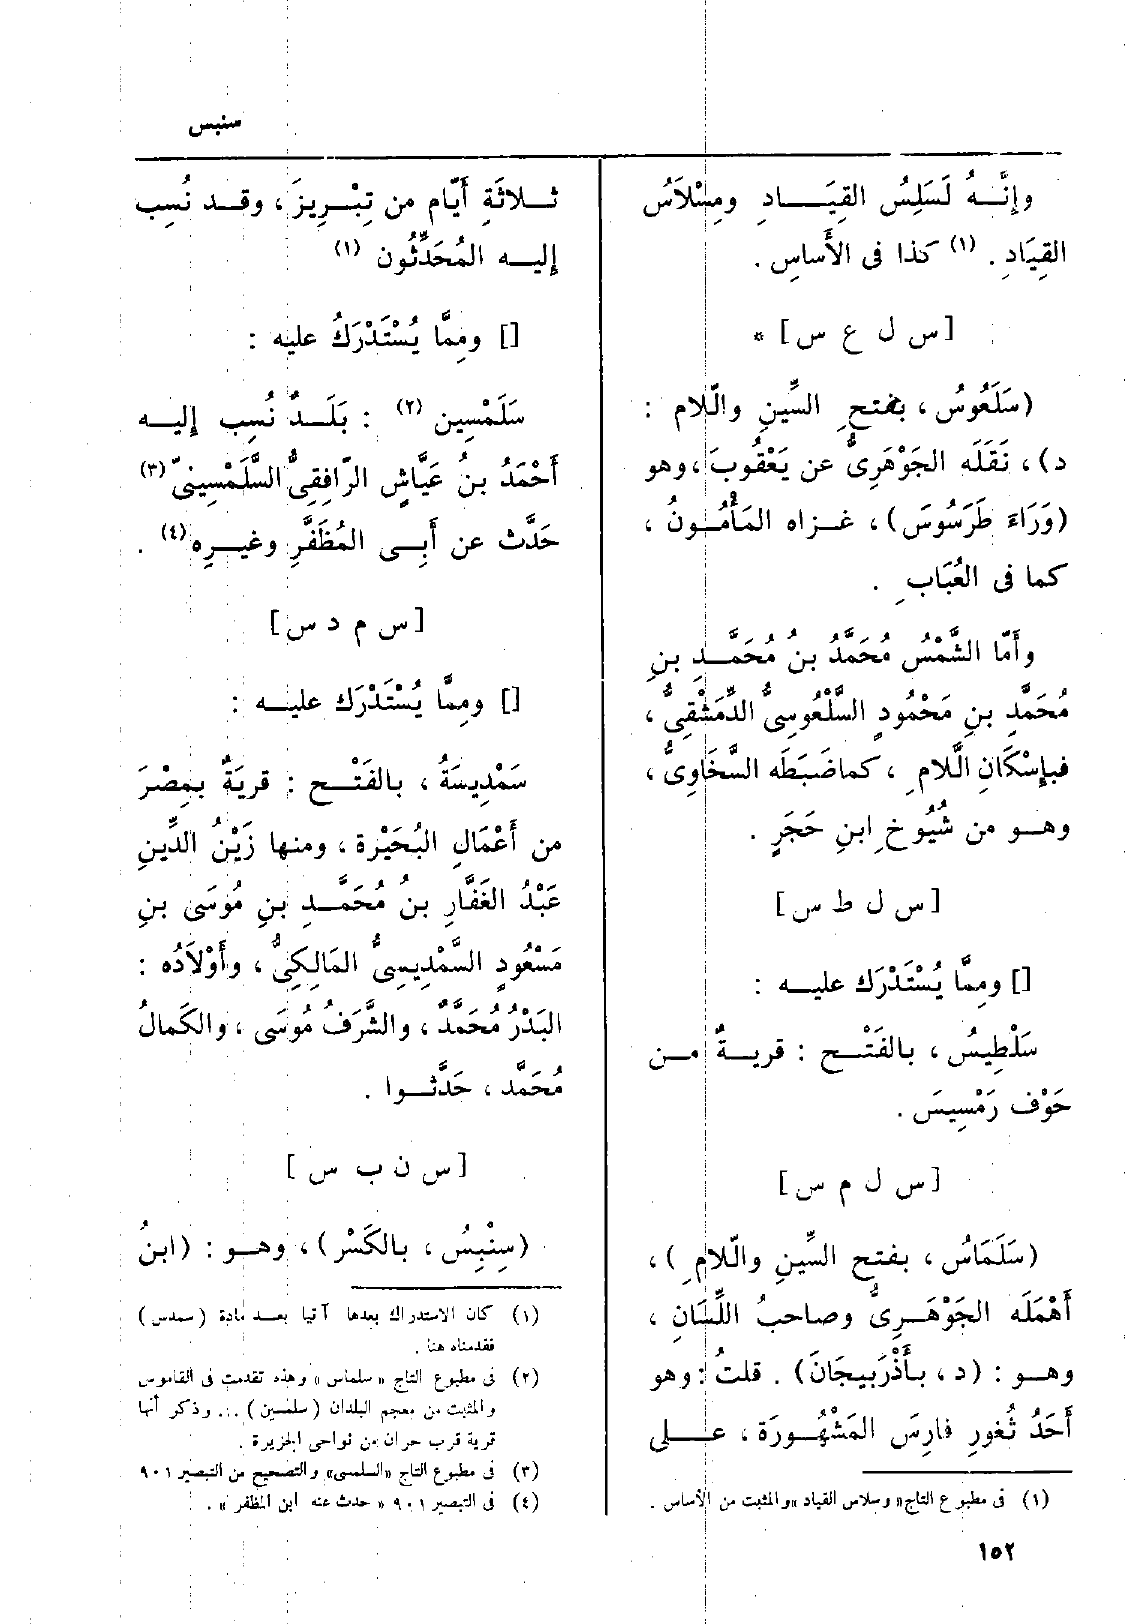 سنبس
وإنَّـهُ لَسَلِسُ القِيَـادِ ومِسْلَاسُ
القِيَادِ . (١) كذا فى الأَساسِ .
[س ل ع س] *
(سَلَعُوسُ ، بفتحِ السِّينِ والَّلام :
د) ، نَقَلَه الجَوْهَرِىُّ عن يَعْقُوبَ ، وهو
(وَرَاءَ طَرَسُوسَ) ، غـزاه المَأْمُـونُ ،
كما فى العُبَابِ .
وأَمّا الشَّمْسُ مُحَمَّدُ بنُ مُحَمَّـدِ بنِ
مُحَمَّدِ بنِ مَحْمُودٍ السَّلْعُوسِىُّ الدِّمَشْقِىُّ ،
فبإِسْكَانِ الَّلامِ ، كماضَبَطَه السَّخَاوِىُّ ،
وهـو من شُيُوخِ ابنِ حَجَرٍ .
[س ل ط س]
[] ومِمَّا يُسْتَدْرَك عليـه :
سَلْطِيسُ ، بالفَتْـح : قريـةٌ مـن
حَوْف رَمْسِيسَ .
[س ل م س]
(سَلَمَاسُ ، بفتح السِّينِ والَّلامِ) ،
أَهْمَلَه الجَوْهَـرِىُّ وصاحبُ اللِّسَانِ ،
وهـو : (د ، بأَذْرَبِيجَانَ) . قلتُ : وهو
أَحَدُ ثُغورِ فارِسَ المَشْهُـورَة ، عـلى
(١) فى مطبوع التاج « وسلاس القياد » والمثبت من الأساس .
ثـلاثَةِ أَيّام من تِبْـرِيزَ ، وقـد نُسِب
إليـه المُحَدِّثُون (١)
[] ومِمَّا يُسْتَدْرَكُ عليه :
سَلَمْسِين (٢) : بَلَـدٌ نُسِب إليـه
أَحْمَدُ بنُ عَيَّاشٍ الرّافِقِىُّ السَّلَمْسِينىّ (٣)
حَدَّث عن أَبِـى المُظَفَّرِ وغيـرِه (٤) .
[س م د س]
[] ومِمَّا يُسْتَدْرَك عليـه :
سَمْدِيسَةُ ، بالفَتْـح : قريَةٌ بمِصْرَ
من أَعْمَالِ البُحَيْرة ، ومنها زَيْنُ الدِّينِ
عَبْدُ الغَفَّارِ بنُ مُحَمَّـدِ بنِ مُوسَى بنِ
مَسْعُودٍ السَّمْدِيسِىُّ المَالِكِىُّ ، وأَوْلَادُه :
البَدْرُ مُحَمَّدٌ ، والشَّرَفُ مُوسَى ، والكَمالُ
مُحَمَّد ، حَدَّثـوا .
[س ن ب س]
(سِنْبِسُ ، بالكَسْرِ) ، وهـو : (ابنُ
(١) كان الاستدراك بعدها آتيا بعـد مادة (سمدس)
فقدمناه هنا .
(٢) فى مطبوع التاج « سلماس » وهذه تقدمت فى القاموس
والمثبت من معجم البلدان (سلمسين) ... وذكر أنها
قرية قرب حران من نواحى الجزيرة .
(٣) فى مطبوع التاج « السلمسى » والتصحيح من التبصير ٩٠١
(٤) فى التبصير ٩٠١ « حدث عنه ابن المظفر » .
١٥٢